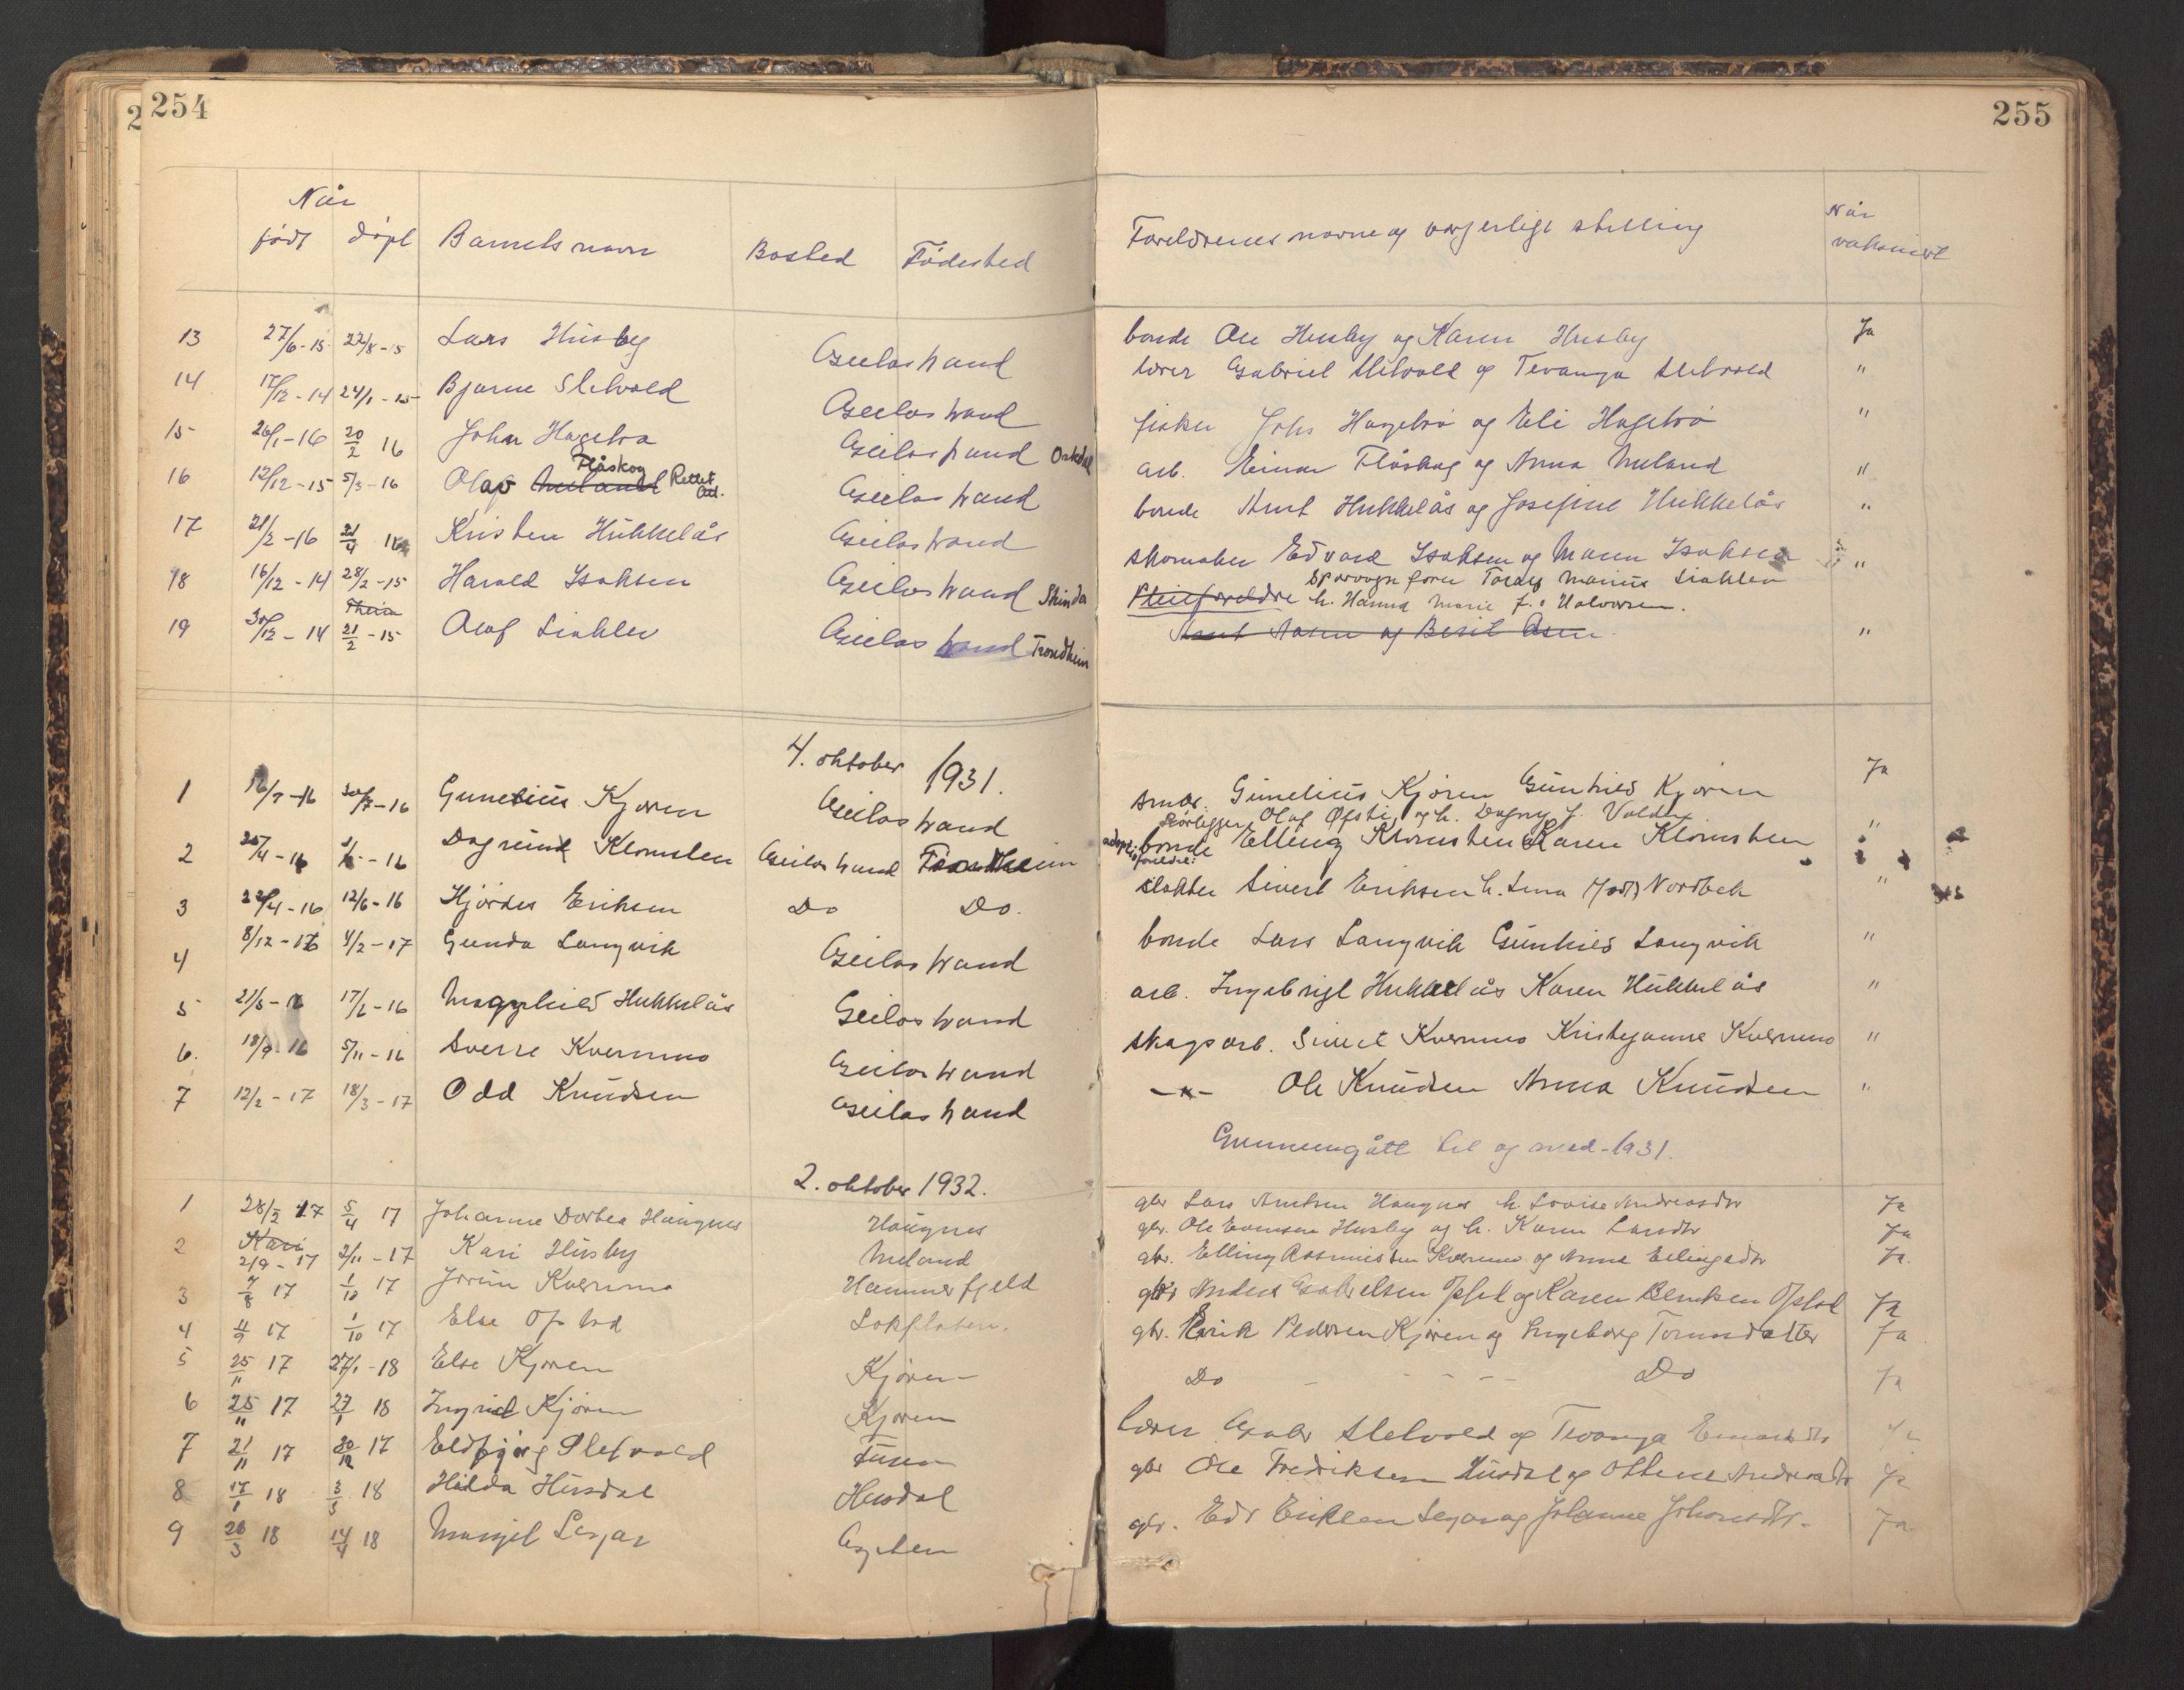 254
Når
født døpt Barnets navn Bosted Fødested
13 27/6-15 22/8-15 Lars Husby Geilastrand
14 17/12-14 24/1-15 Bjarne Sletvold Geilastrand
15 26/1-16 20/2 16 John Hagebø Geilastrand Orkdal
Flåskog
16 12/12-15 5/3-16 Olav Meland Rettet Geilastrand
17 21/2-16 21/4 16 Kristen Hukkelås Geilastrand
18 16/12-14 28/2-15 Harald Isaksen Geilastrand
Thein
19 30/12-14 21/2-15 Olaf Siahler Geilastrand Trondheim
4. oktober 1931.
1 16/7-16 30/7-16 Gunelius Kjøren Geilastrand
2 Dagrund Klomsten Geilastrand Trondheim
3 22/4-16 12/6-16 Hjørdis Eriksen Do Do.
4 8/12-16 4/2-17 Gunda Langvik Geilastrand
5 Magnhild Hukkelås Geilastrand
6. 18/9 16 5/11-16 Sverre Kvernmo Geilastrand
7 12/2-17 18/3-17 Odd Knudsen Geilastrand
2. oktober 1932.
1 28/2 17 5/4 17 Johanne Dortea Haugnes Haugnes
Kari
2 2/9-17 2/11-17 Kari Husby Meland
3 7/8 17 1/10 17 Jorun Kvernmo Hammerfjeld
4 1/10 17 Else Opstad
5 25/11 17 27/1-18 Else Kjøren Kjøren
6 25/11 17 27/1 18 Ingrid Kjøren Kjøren
7 21/11 17 30/12 17 Eldbjørg Sletvold
8 17/1 18 3/3 18 Hilda Husdal Husdal
9 26/3 18 14/4 18 Margit Segar
255
Foreldrenes navne og borgerlige stilling
Når vaksinert
bonde Ole Husby og Karen Husby Ja
lærer Gabriel Sletvold og Tevanga Sletvold "
fisker Johs Hagebø og Eli Hagebø "
arb. Einar Flåskog og Anna Meland "
bonde Arnt Hukkelås og Josefine Hukkelås "
skomaker Edvard Isaksen og Maren Isaksen "
Sporvogn
Pleieforeldre h. Hanna Marie f. Halvorsen.
Arnt Aasen og Beret Åsen "
Gunelius Kjøren Gunhild Kjøren Ja
Rørlegger Olaf Øfsti og h. Dagny f.
bonde Elling Klomsten Karen Klomsten "
Sivert Eriksen h. Lina (født) Nordbek "
bonde Lars Langvik Gunhild Langvik "
arb. Ingebrigt Hukkelås Karen Hukkelås "
skogsarb. Sivert Kvernmo Kristejanne Kvernmo "
-"- Ole Knudsen Anna Knudsen "
Gjennemgått til og med 1931.
gbr Lars Arntsen Haugnes h. Lovise Andreasdtr Ja
gbr. Ole Evensen Husby og h. Karen Larsdtr Ja
gbr. Elling Rasmussen Kvernmo og Anna Ellingsdtr Ja.
gbr Anders Gabrielsen Opstad og Karen Opstad Ja
gbr. Erik Pedersen Kjøren og Ingeborg Ja
Do - - - - Do Ja
lærer Gabr Sletvold og Tevanga
gbr Ole Fredriksen Husdal og Ottine Andreasdtr Ja
gbr. Edv Eriksen Segar og Johanne Johansdtr. Ja